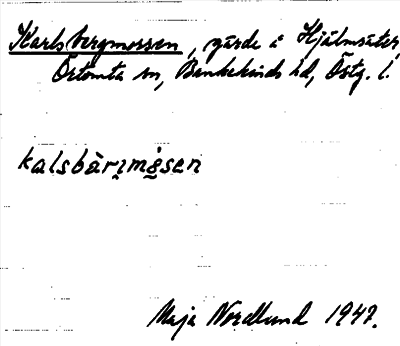 Karlsbergmossen, gärde å Hjälmsäter,
Örtomta sn, Bankekinds hd, Östg. l.
kalsbärɪmåsen
Maja Nordlund 1947.